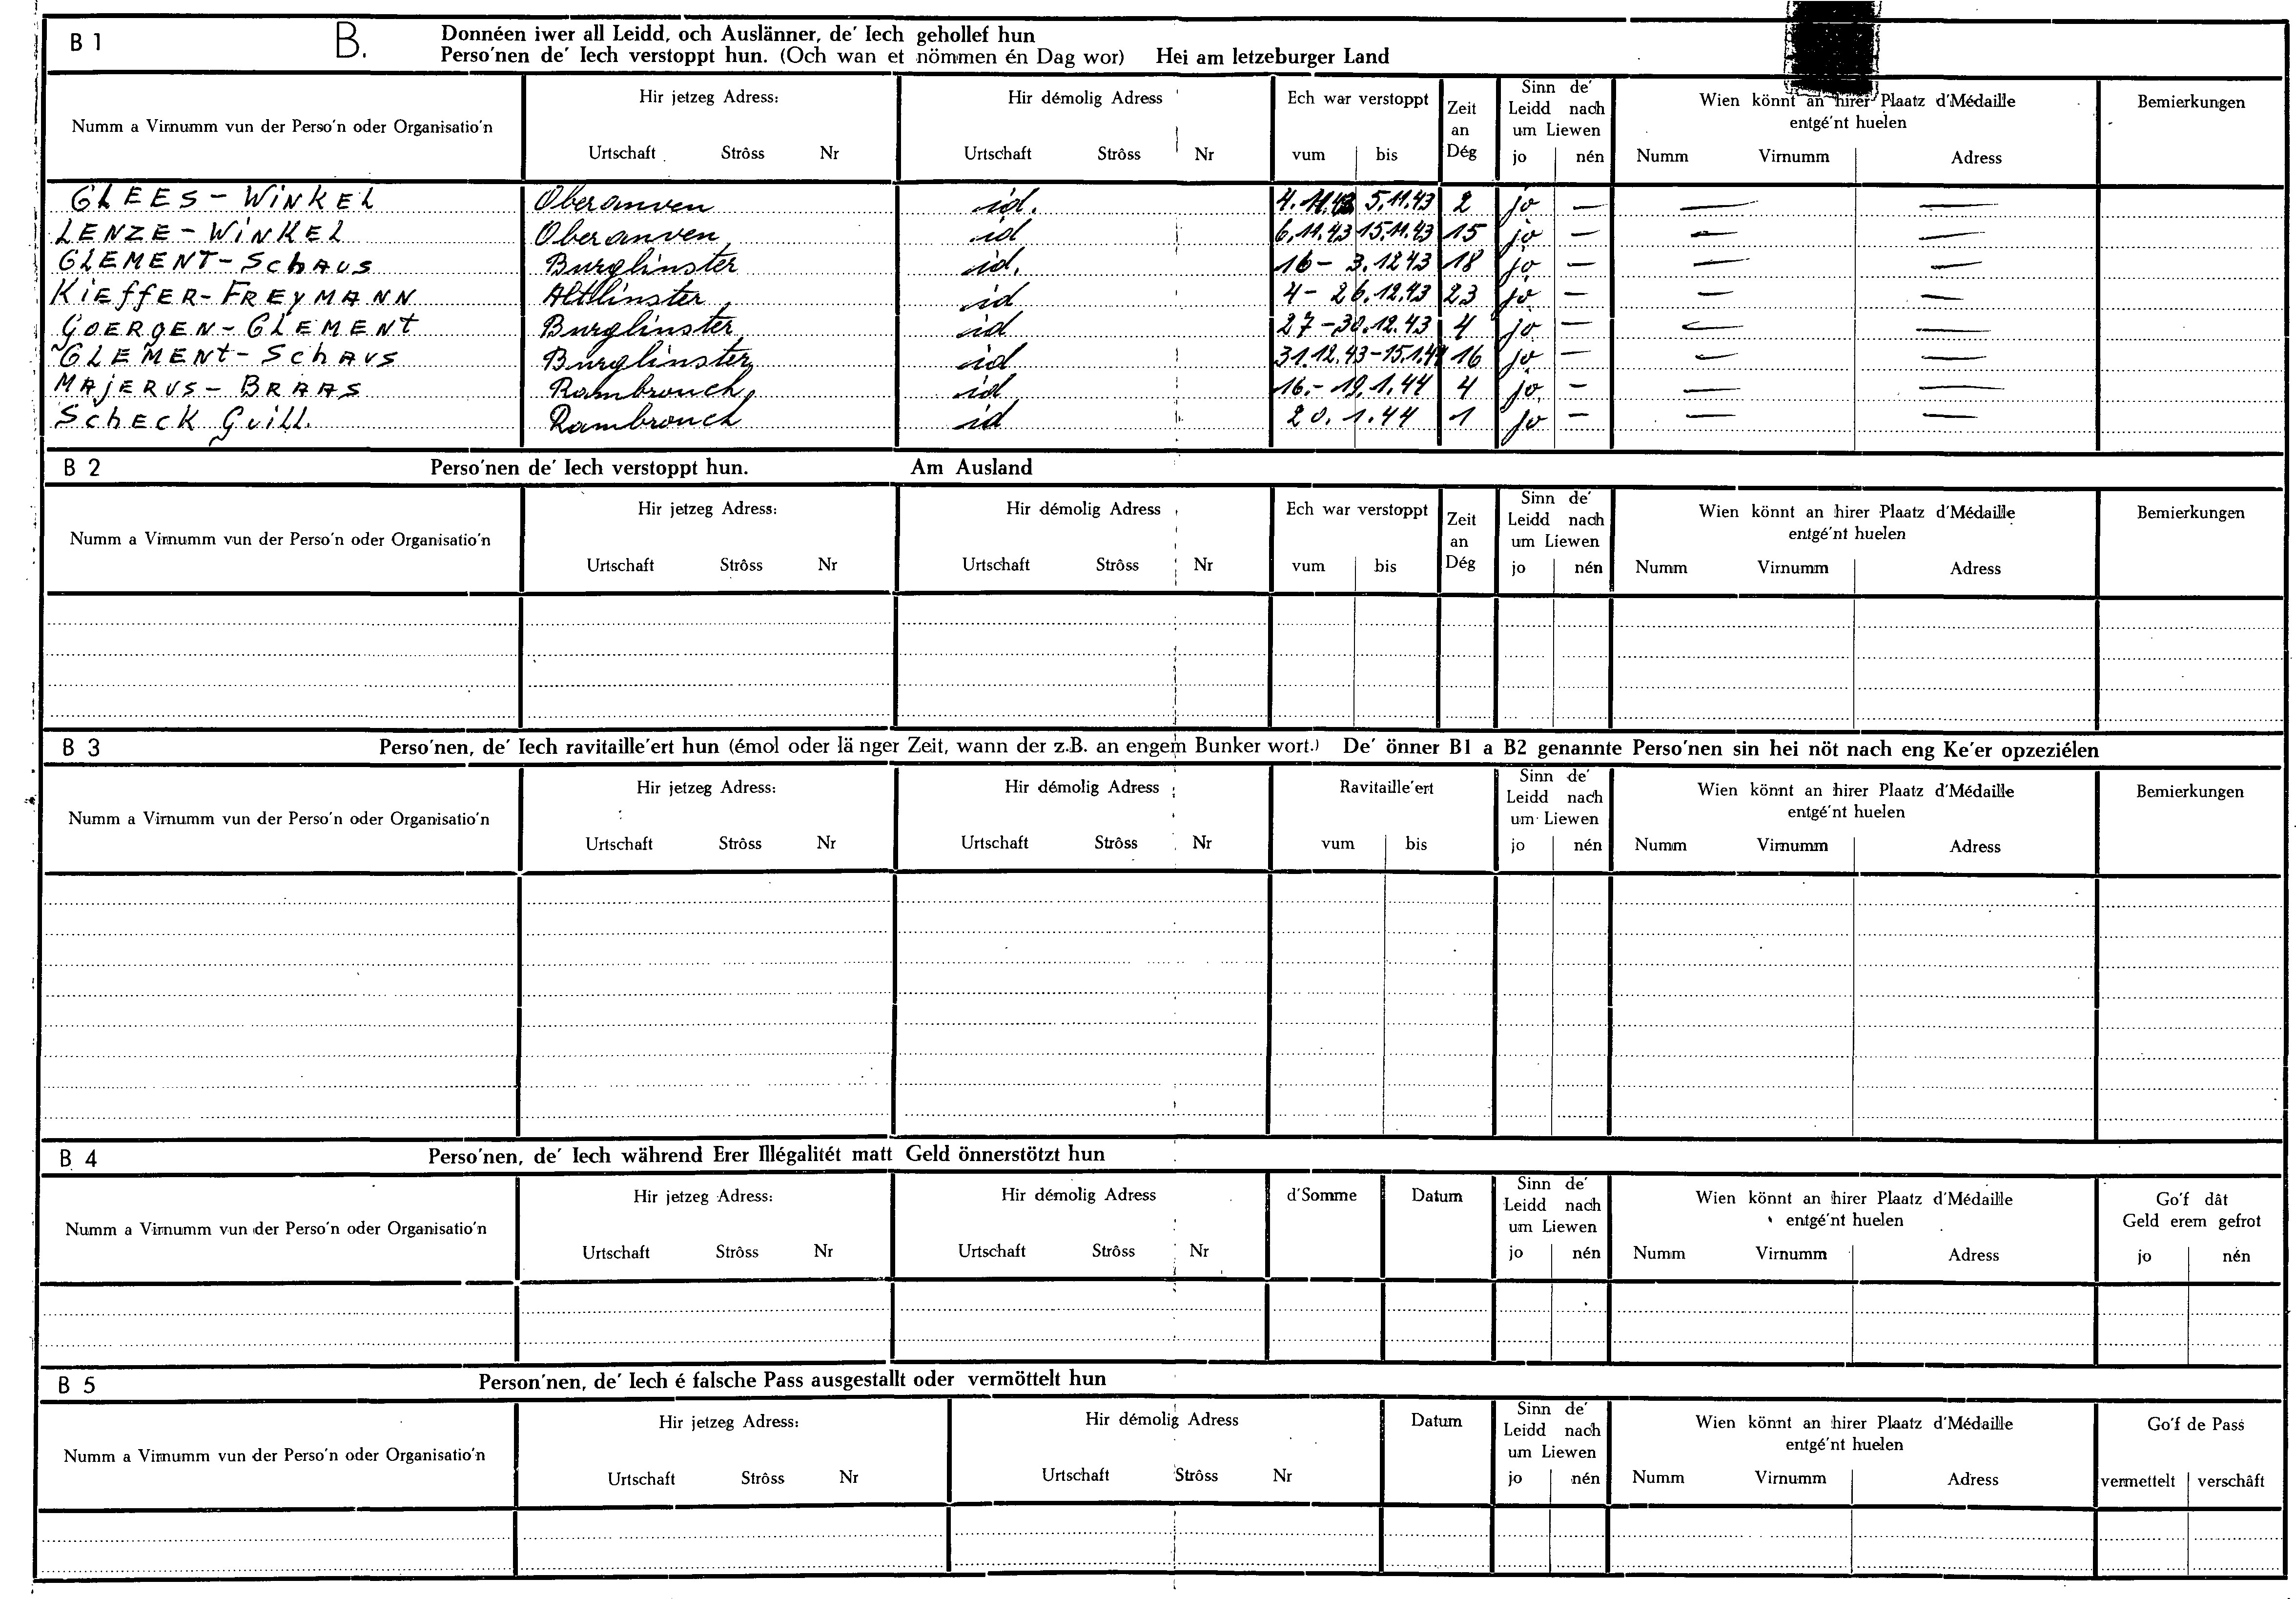 B 1 B. Donnéen iwer all Leidd, och Auslänner, de' Iech gehollef hun
Perso'nen de' Iech verstoppt hun. (Och wan et nömmen én Dag wor) Hei am letzeburger Land
Numm a Virnumm vun der Perso'n oder Organisatio'n
Hir jetzeg Adress:
Urtschaft Strôss Nr
Hir démolig Adress
Urtschaft Strôss Nr
Ech war verstoppt
vum bis
Zeit
an
Dég
Sinn de'
Leidd nach
um Liewen
jo nén
Wien könnt an hirer Plaatz d'Médaille
entgé'nt huelen
Numm Virnumm Adress
Bemierkungen
GLEES - WiNKEL Oberanven id. 4.11.43 5.11.43 2 jo — — —
LENZE - WiNKEL Oberanven id 6.11.43 15.11.43 15 jo — — —
CLEMENT - SchAUS Burglinster id. 16 - 3.12 43 18 jo — — —
KiEffER - FREYMANN Altlinster id 4 - 26.12.43 23 jo — — —
GOERGEN - CLEMENt Burglinster id 27 - 30.12.43 4 jo — — —
CLEMENt - SchAUS Burglinster id 31.12.43 - 15.1.44 16 jo — — —
MAjERUS - BRAAS Rambrouch id 16. - 19.1.44 4 jo — — —
SchECK Guill. Rambrouch id 20.1.44 1 jo — — —
B 2 Perso'nen de' Iech verstoppt hun. Am Ausland
Numm a Virnumm vun der Perso'n oder Organisatio'n
Hir jetzeg Adress:
Urtschaft Strôss Nr
Hir démolig Adress
Urtschaft Strôss Nr
Ech war verstoppt
vum bis
Zeit
an
Dég
Sinn de'
Leidd nach
um Liewen
jo nén
Wien könnt an hirer Plaatz d'Médaille
entgé'nt huelen
Numm Virnumm Adress
Bemierkungen
B 3 Perso'nen, de' Iech ravitaille'ert hun (émol oder länger Zeit, wann der z.B. an engem Bunker wort.) De' önner B1 a B2 genannte Perso'nen sin hei nöt nach eng Ke'er opzeziélen
Numm a Virnumm vun der Perso'n oder Organisatio'n
Hir jetzeg Adress:
Urtschaft Strôss Nr
Hir démolig Adress
Urtschaft Strôss Nr
Ravitaille'ert
vum bis
Sinn de'
Leidd nach
um Liewen
jo nén
Wien könnt an hirer Plaatz d'Médaille
entgé'nt huelen
Numm Virnumm Adress
Bemierkungen
B 4 Perso'nen, de' Iech während Erer Illégalitét matt Geld önnerstötzt hun
Numm a Virnumm vun der Perso'n oder Organisatio'n
Hir jetzeg Adress:
Urtschaft Strôss Nr
Hir démolig Adress
Urtschaft Strôss Nr
d'Somme
Datum
Sinn de'
Leidd nach
um Liewen
jo nén
Wien könnt an hirer Plaatz d'Médaille
entgé'nt huelen
Numm Virnumm Adress
Go'f dât
Geld erem gefrot
jo nén
B 5 Person'nen, de' Iech é falsche Pass ausgestallt oder vermöttelt hun
Numm a Virnumm vun der Perso'n oder Organisatio'n
Hir jetzeg Adress:
Urtschaft Strôss Nr
Hir démolig Adress
Urtschaft Strôss Nr
Datum
Sinn de'
Leidd nach
um Liewen
jo nén
Wien könnt an hirer Plaatz d'Médaille
entgé'nt huelen
Numm Virnumm Adress
Go'f de Pass
vermettelt verschâft